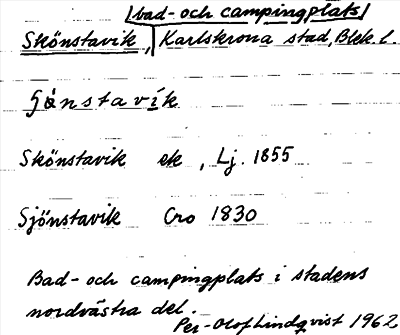 bad- och campingplats
Skönstavik, Karlskrona stad, Blek. l.
Skönstavik ek, Lj. 1855
Sjönstavik Cro 1830
Bad- och campingplats i stadens
nordvästra del.
Per-Olof Lindqvist 1962